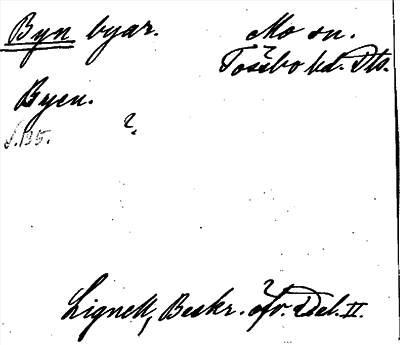 Byn byar. Mo sn.
Tössbo hd. Dls.
Byen.
S. 135. ?
Lignell, Beskr. öfv. Dal. II.